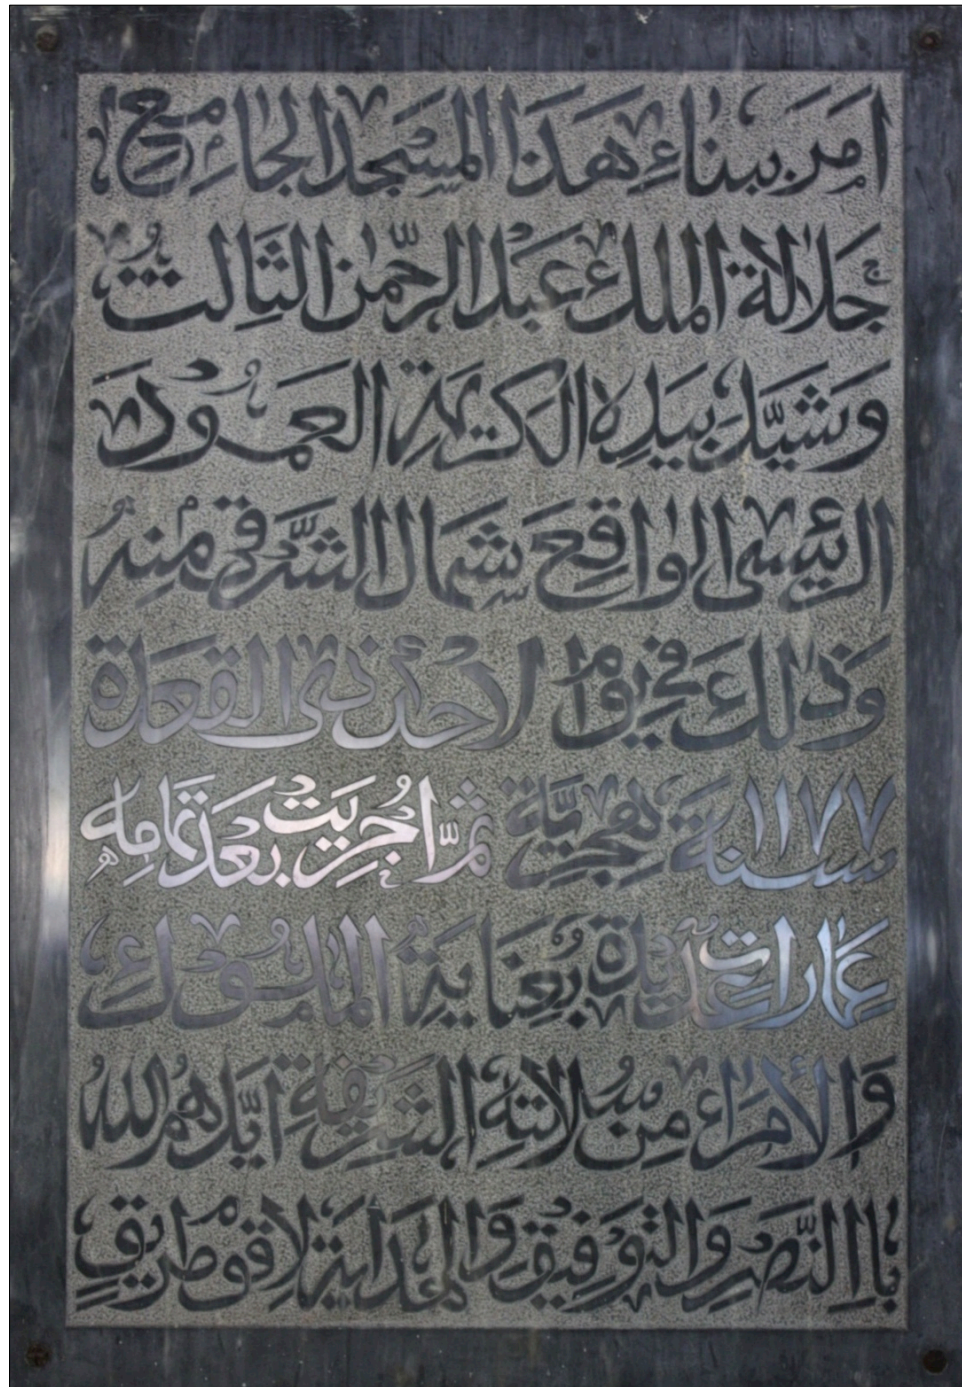 امَرَ ببناءِ هَذَا المسْجد الجامِع
جَلالة الملك عَبْد الرحمٰن الثالثُ
وَشيَّدَ بيَدِهِ الكَريمَةِ العَمُودَ
الرئيسى الواقِعَ شمَال الشَّرقى مِنهُ
وَذٰلك في يَوْم الاحْد ذى القعَدة
سَنة ١١٧٧ هجريَّة ثمَّ اُجريَتْ بعْدَ تمامِه
عمَارات عَديدة بُعِنَايَةِ المُلوُكِ
وَالأمَراءِ مِن سُلالاتهِ الشريفةِ ايَّدهُم اللهُ
باالنَّصرِ وَالتوفيْقِ وَالهدَايَة لاقوم طريقٍ